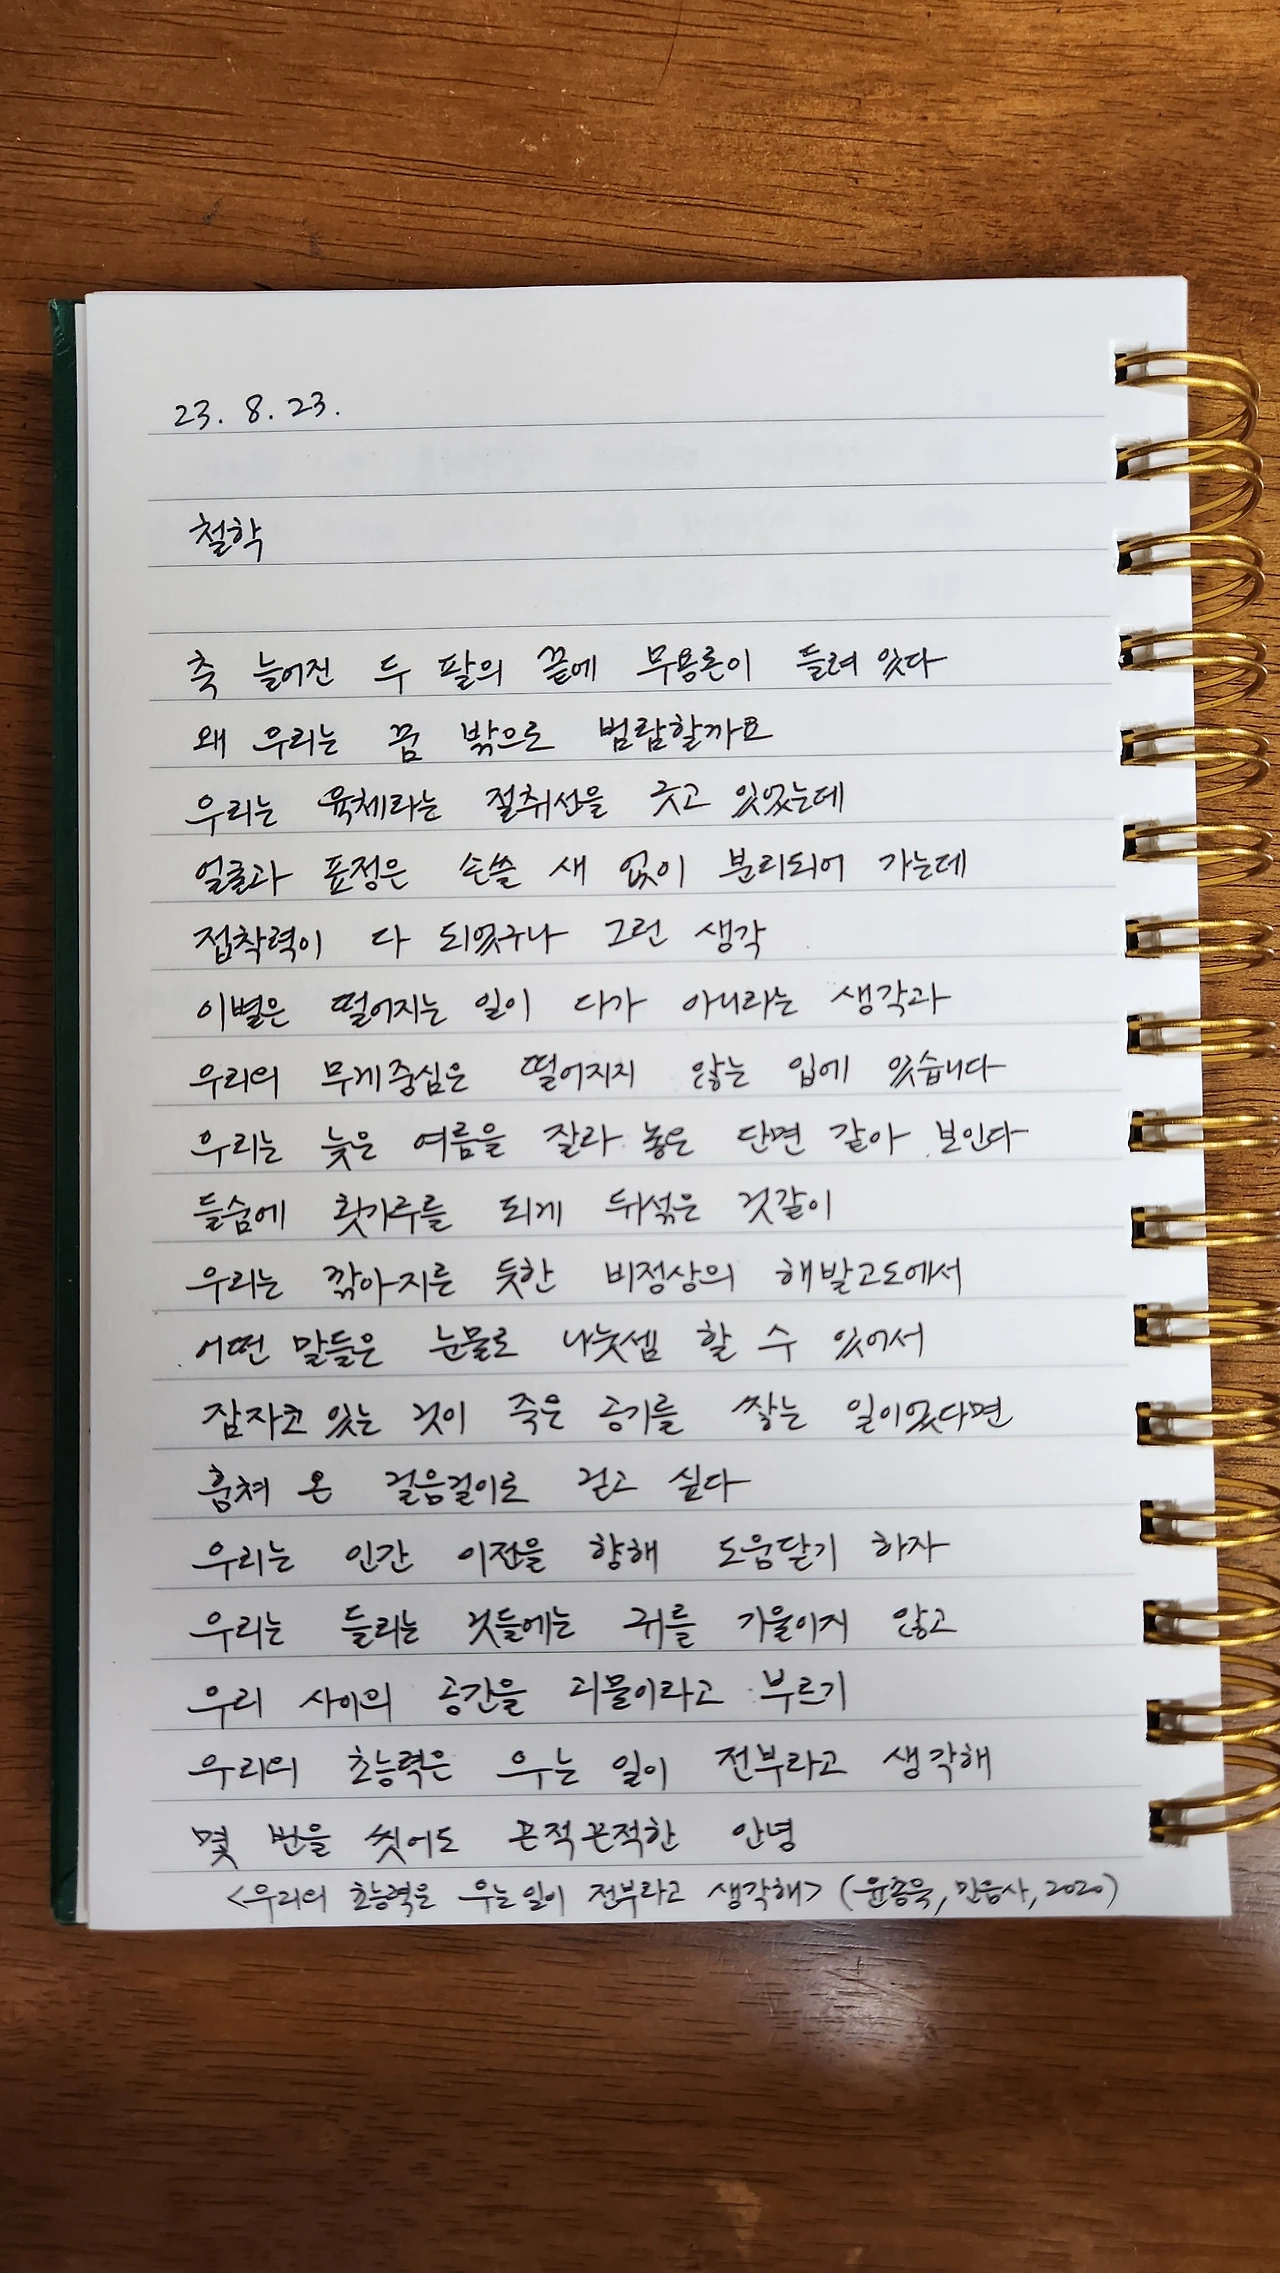 23. 8. 23.
철학
축 늘어진 두 팔의 끝에 무용론이 들려 있다
왜 우리는 꿈 밖으로 범람할까요
우리는 육체라는 절취선을 긋고 있었는데
얼굴과 표정은 손쓸 새 없이 분리되어 가는데
접착력이 다 되었구나 그런 생각
이별은 떨어지는 일이 다가 아니라는 생각과
우리의 무게중심은 떨어지지 않는 입에 있습니다
우리는 늦은 여름을 잘라 놓은 단면 같아 보인다
들숨에 횟가루를 되게 뒤섞은 것같이
우리는 깎아지른 듯한 비정상의 해발고도에서
어떤 말들은 눈물로 나눗셈 할 수 있어서
잠자코 있는 것이 죽은 공기를 쌓는 일이었다면
훔쳐 온 걸음걸이로 걷고 싶다
우리는 인간 이전을 향해 도움닫기 하자
우리는 들리는 것들에는 귀를 기울이지 않고
우리 사이의 공간을 괴물이라고 부르기
우리의 초능력은 우는 일이 전부라고 생각해
몇 번을 씻어도 끈적끈적한 안녕
<우리의 초능력은 우는 일이 전부라고 생각해> (윤종욱, 민음사, 2020)